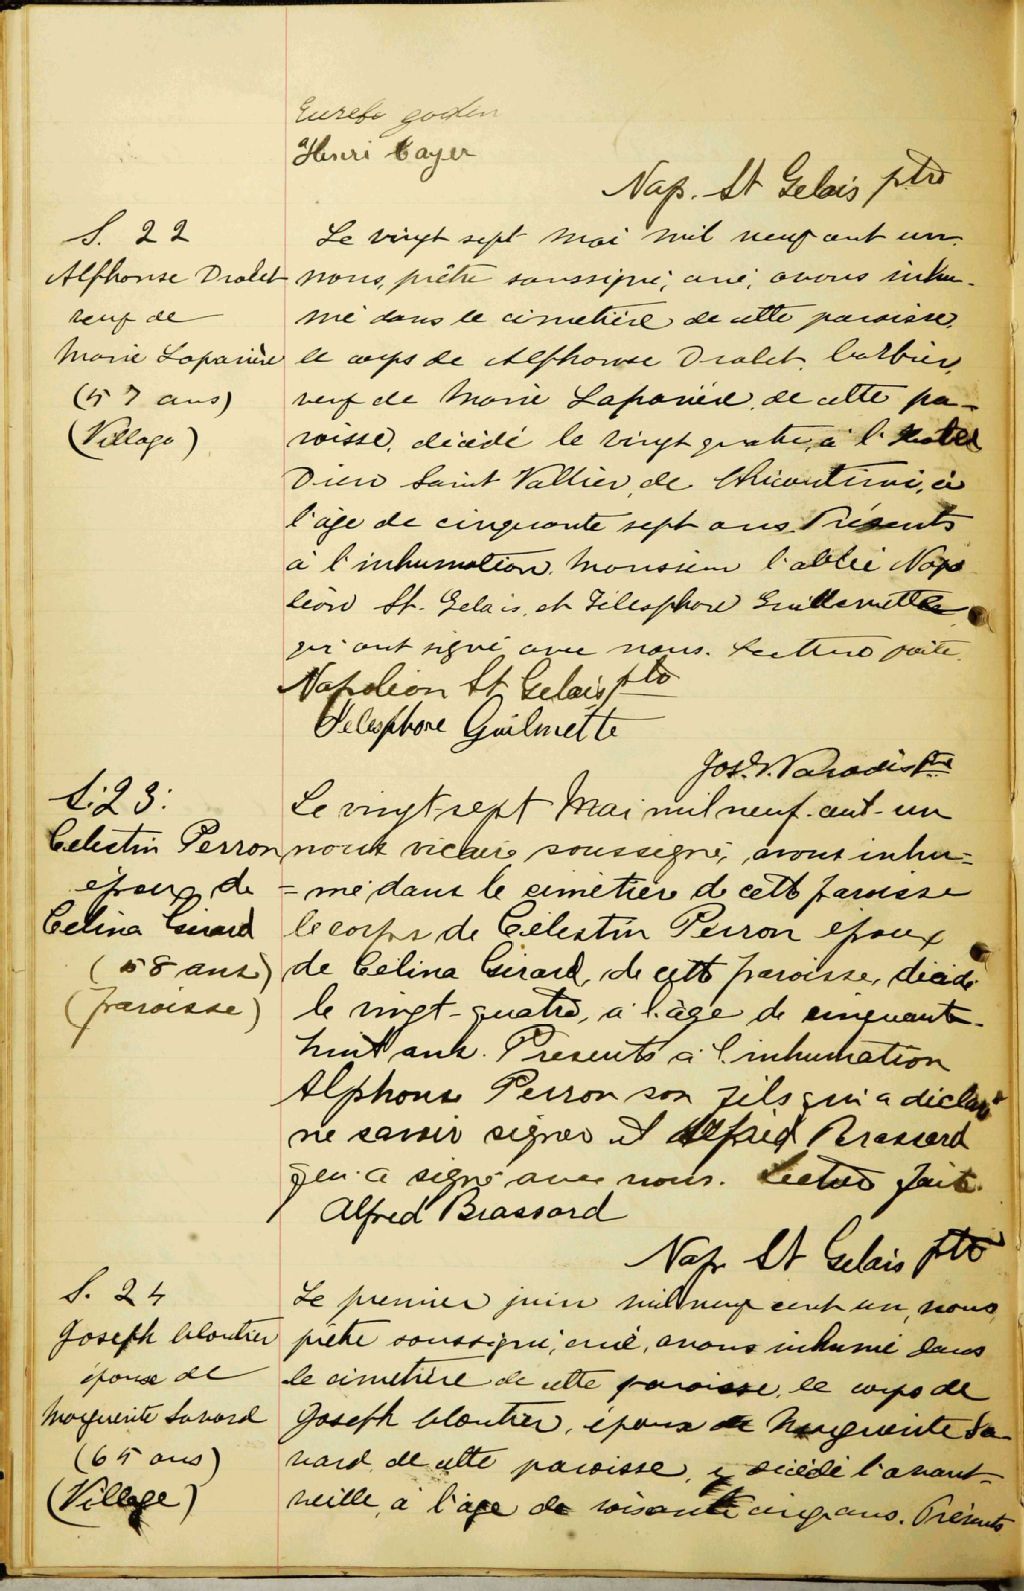 Henri Cayer
Nap. St Gelais ptre
S. 22
Alphonse Drolet
veuf de
Marie Lapariére
(57 ans)
(Village)
Le vingt sept mai mil neuf cent un,
nous, prêtre soussigné, curé, avons inhu-
mé dans le cimetière de cette paroisse,
le corps de Alphonse Drolet, barbier,
veuf de Marie Lapariére, de cette pa-
roisse, décédé le vingt quatre, à l'Hotel
Dieu Saint Vallier, de Chicoutimi, à
l'âge de cinquante sept ans. Présents
à l'inhumation, Monsieur l'abbé Napo
léon St. Gelais, et Télesphore Guillemette
qui ont signé avec nous. Lecture faite.
Napoléon St Gelais ptre
Télesphore Guilmette
Jos. Paradis Ptre
S: 23:
Celestin Perron
époux de
Celina Girard
(58 ans)
(paroisse)
Le vingt-sept Mai mil neuf-cent-un
nous vicaire soussigné, avons inhu=
=mé dans le cimetière de cette paroisse
le corps de Célestin Perron époux
de Célina Girard, de cette paroisse, décédé
le vingt-quatre, à l'âge de cinquante-
huit ans. Presents à l'inhumation
Alphonse Perron son fils qui a déclaré
ne savoir signer et Alfred Brassard
qui a signé avec nous. Lecture faite.
Alfred Brassard
Nap. St Gelais ptre
S. 24
Joseph Cloutier
époux de
Marguerite Savard
(65 ans)
(Village)
Le premier juin mil neuf cent un, nous,
prêtre soussigné, curé, avons inhumé dans
le cimetière de cette paroisse, le corps de
Joseph Cloutier, époux de Marguerite Sa-
vard, de cette paroisse, y décédé l'avant-
veille, à l'âge de soisante cinq ans. Présents